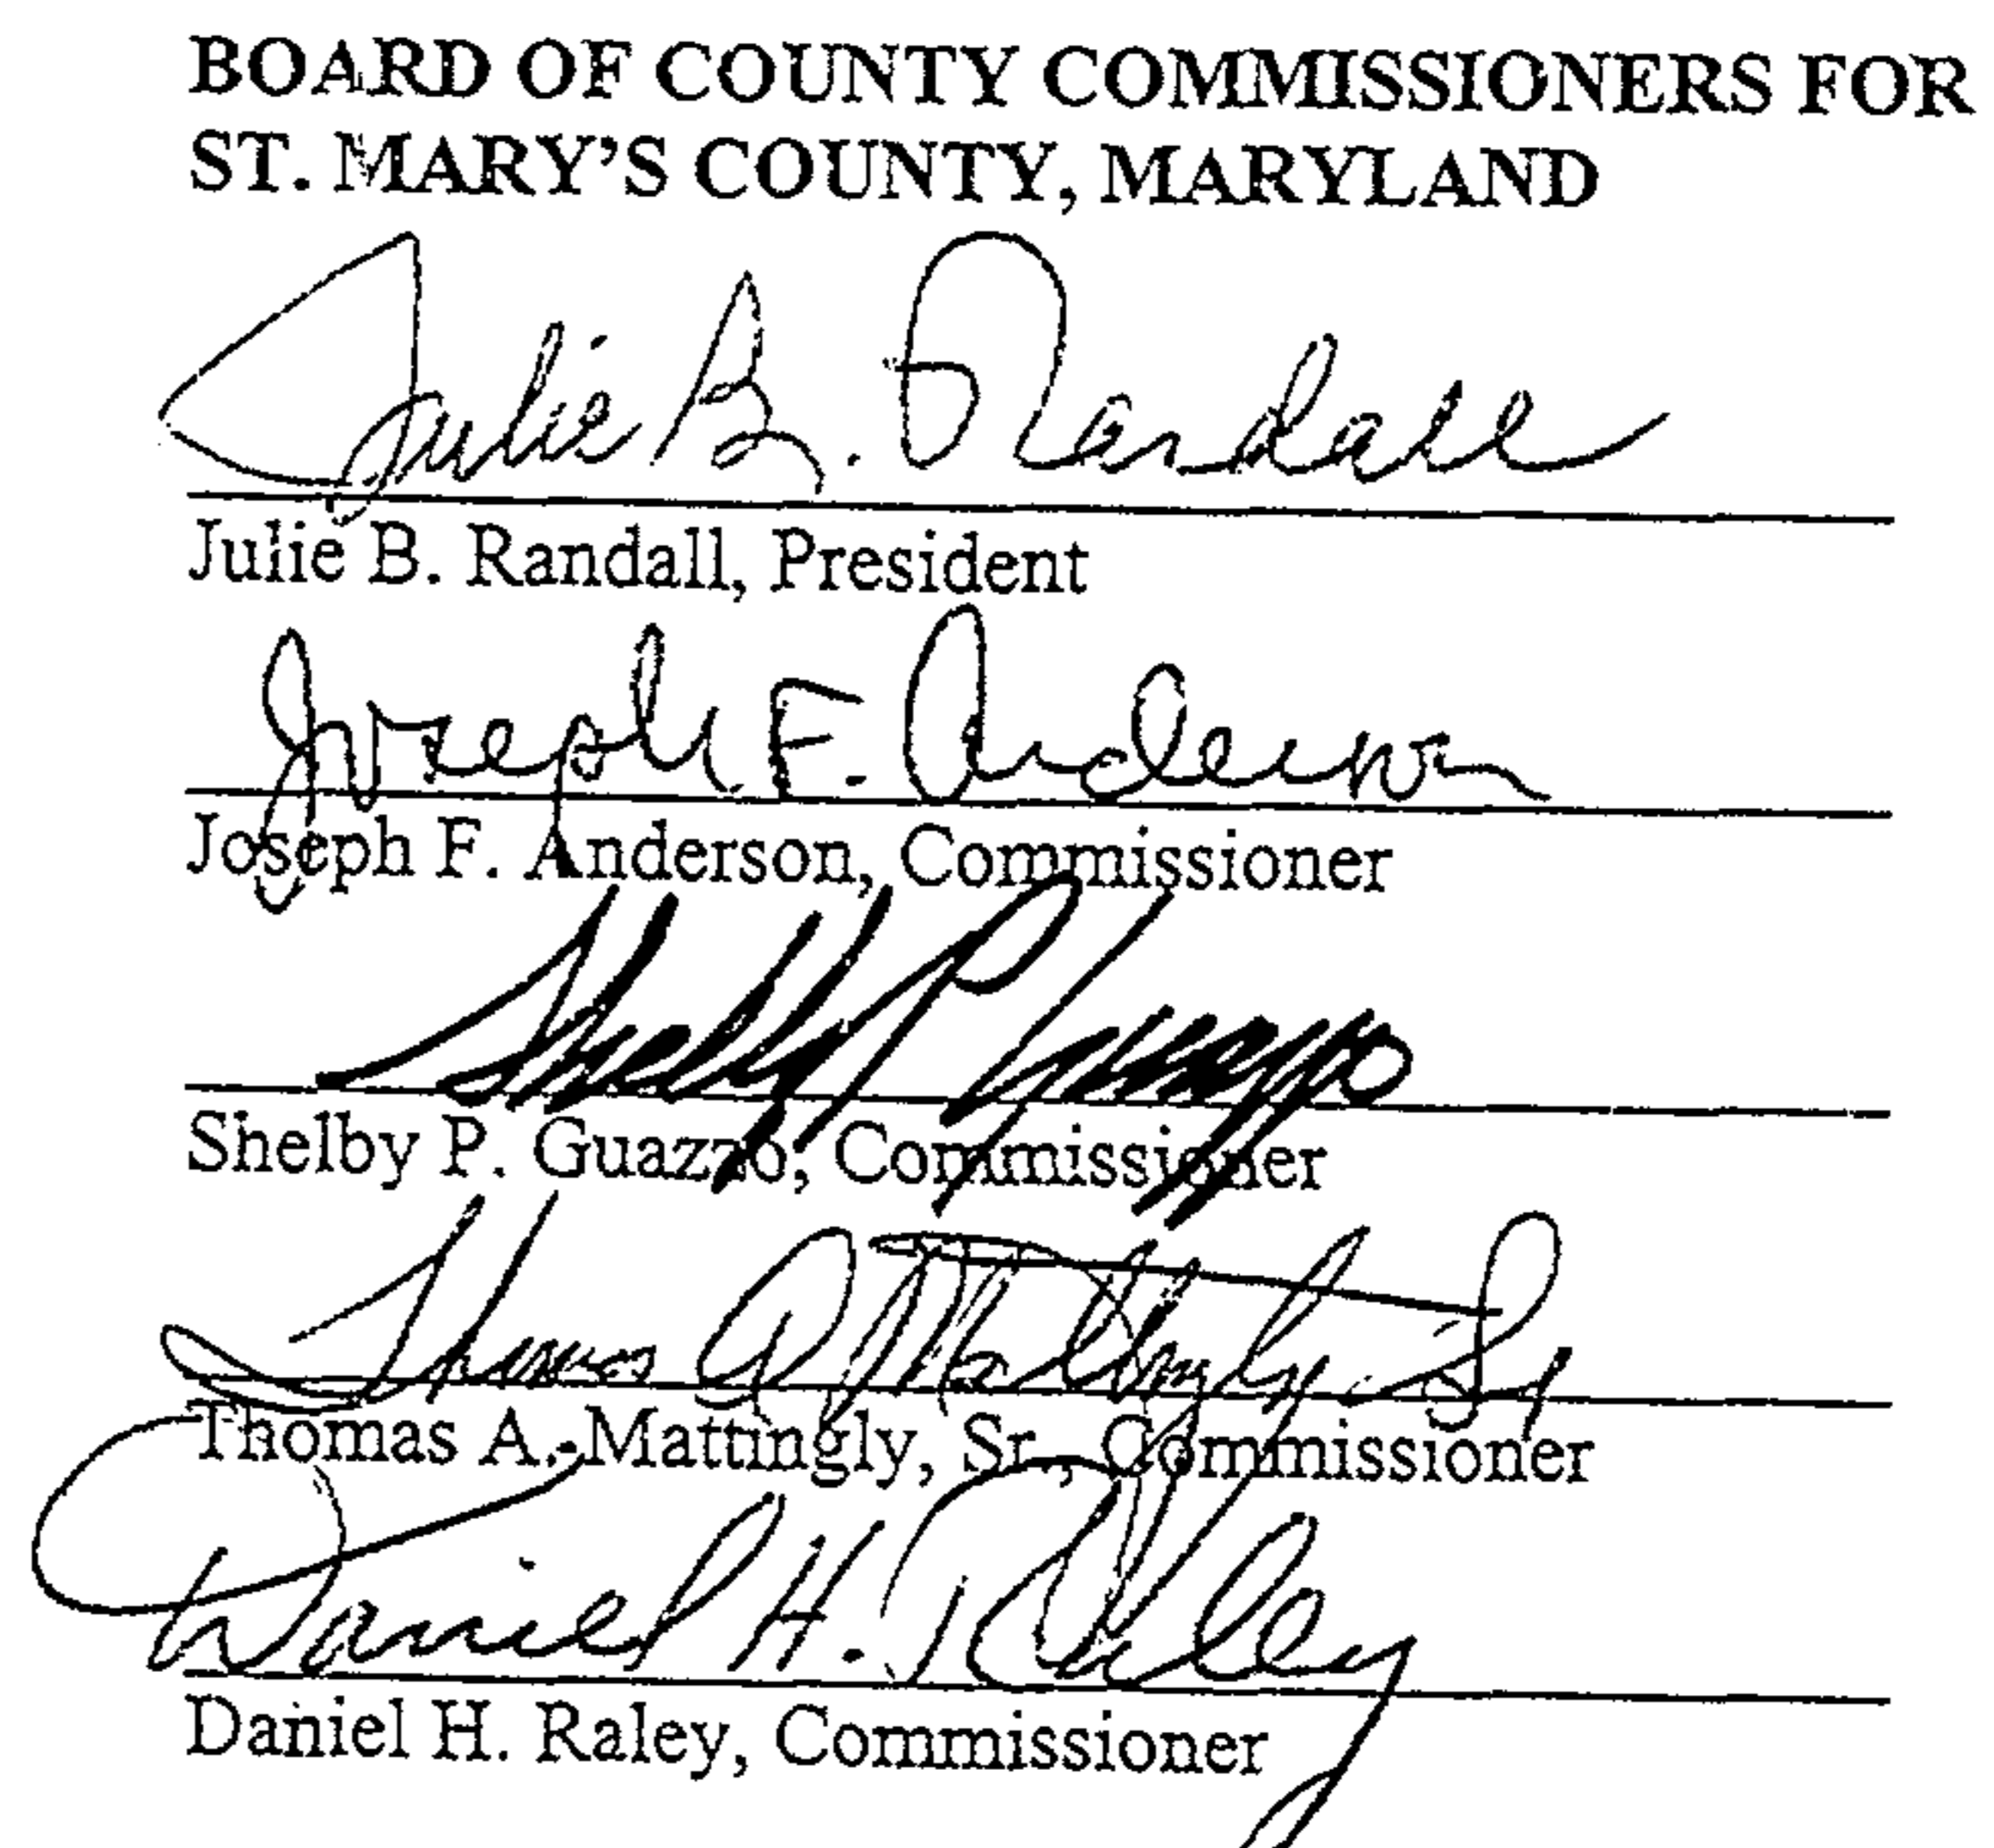 BOARD OF COUNTY COMMISSIONERS FOR
ST. MARY'S COUNTY, MARYLAND
Julie B. Randall
Julie B. Randall, President
Joseph F. Anderson
Joseph F. Anderson, Commissioner
Shelby P. Guazzo
Shelby P. Guazzo, Commissioner
Thomas A. Mattingly, Sr
Thomas A. Mattingly, Sr., Commissioner
Daniel H. Raley
Daniel H. Raley, Commissioner